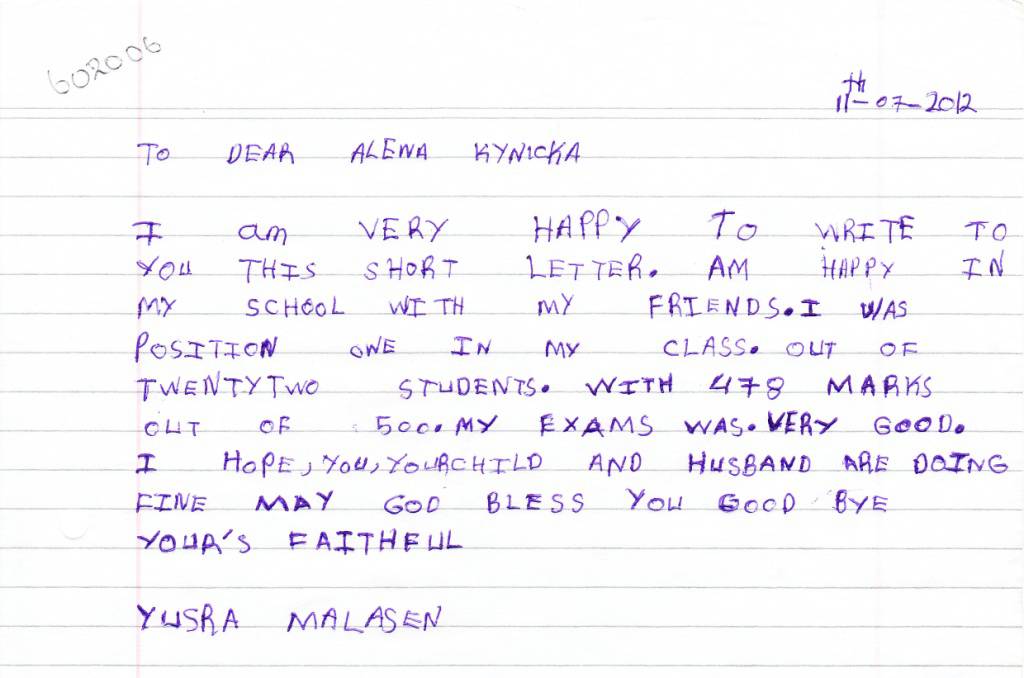 602006
11th-07-2012
TO DEAR ALENA KYNICKA
I am VERY HAPPY TO WRITE TO
YOU THIS SHORT LETTER. AM HAPPY IN
MY SCHOOL WITH MY FRIENDS. I WAS
POSITION ONE IN MY CLASS. OUT OF
TWENTYTWO STUDENTS. WITH 478 MARKS
OUT OF 500. MY EXAMS WAS. VERY GOOD.
I HOPE, YOU, YOURCHILD AND HUSBAND ARE DOING
FINE MAY GOD BLESS YOU GOOD BYE
YOUR'S FAITHFUL
YUSRA MALASEN